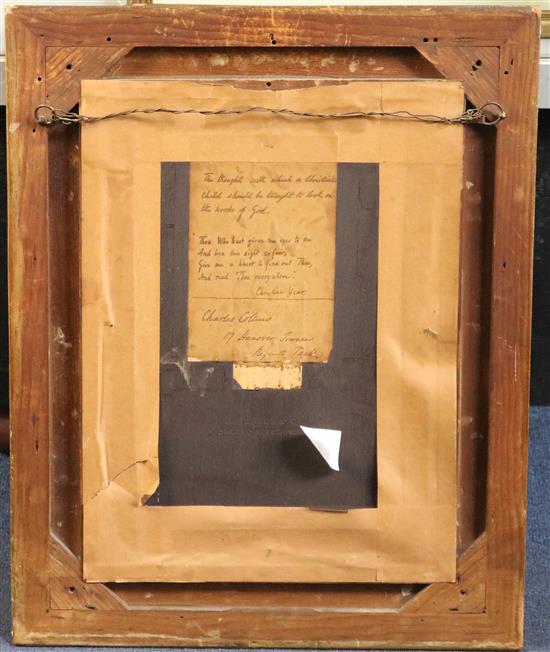 The thoughts with which a Christian
child should be taught to look on
the works of God.
Thou Who hast given me eyes to see
And love this sight so fair,
Give me a heart to find out Thee,
And read Thee everywhere.
Christian Year.
Charles Collins
17 Hanover Terrace
Regents Park